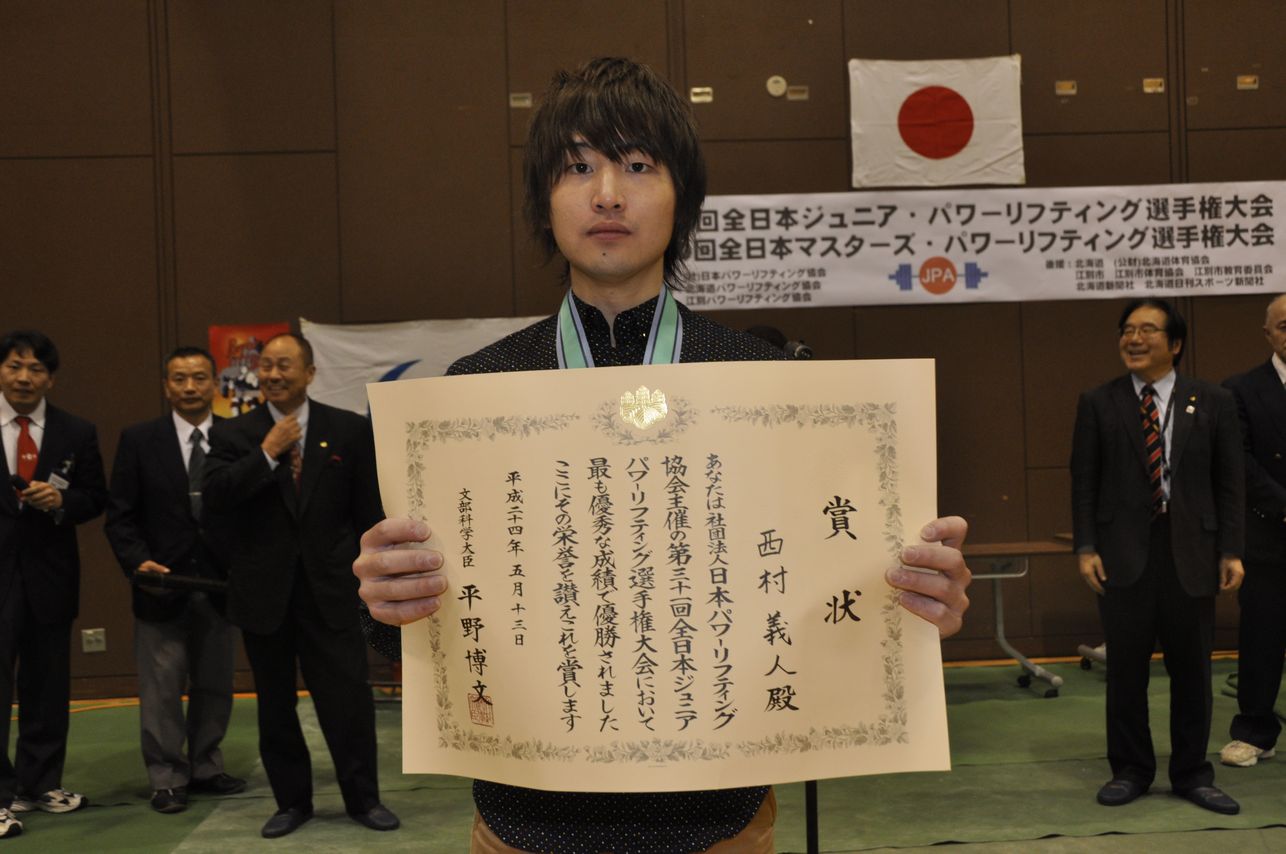 回全日本ジュニア・パワーリフティング選手権大会
回全日本マスターズ・パワーリフティング選手権大会
日本パワーリフティング協会
北海道パワーリフティング協会
江別パワーリフティング協会
JPA
後援：北海道 (公財)北海道体育協会
江別市 江別市体育協会 江別市教育委員会
北海道新聞社 北海道日刊スポーツ新聞社
賞状
西村義人殿
あなたは社団法人日本パワーリフティング
協会主催の第三十一回全日本ジュニア
パワーリフティング選手権大会において
最も優秀な成績で優勝されました
ここにその栄誉を讃えこれを賞します
平成二十四年五月十三日
文部科学大臣 平野博文